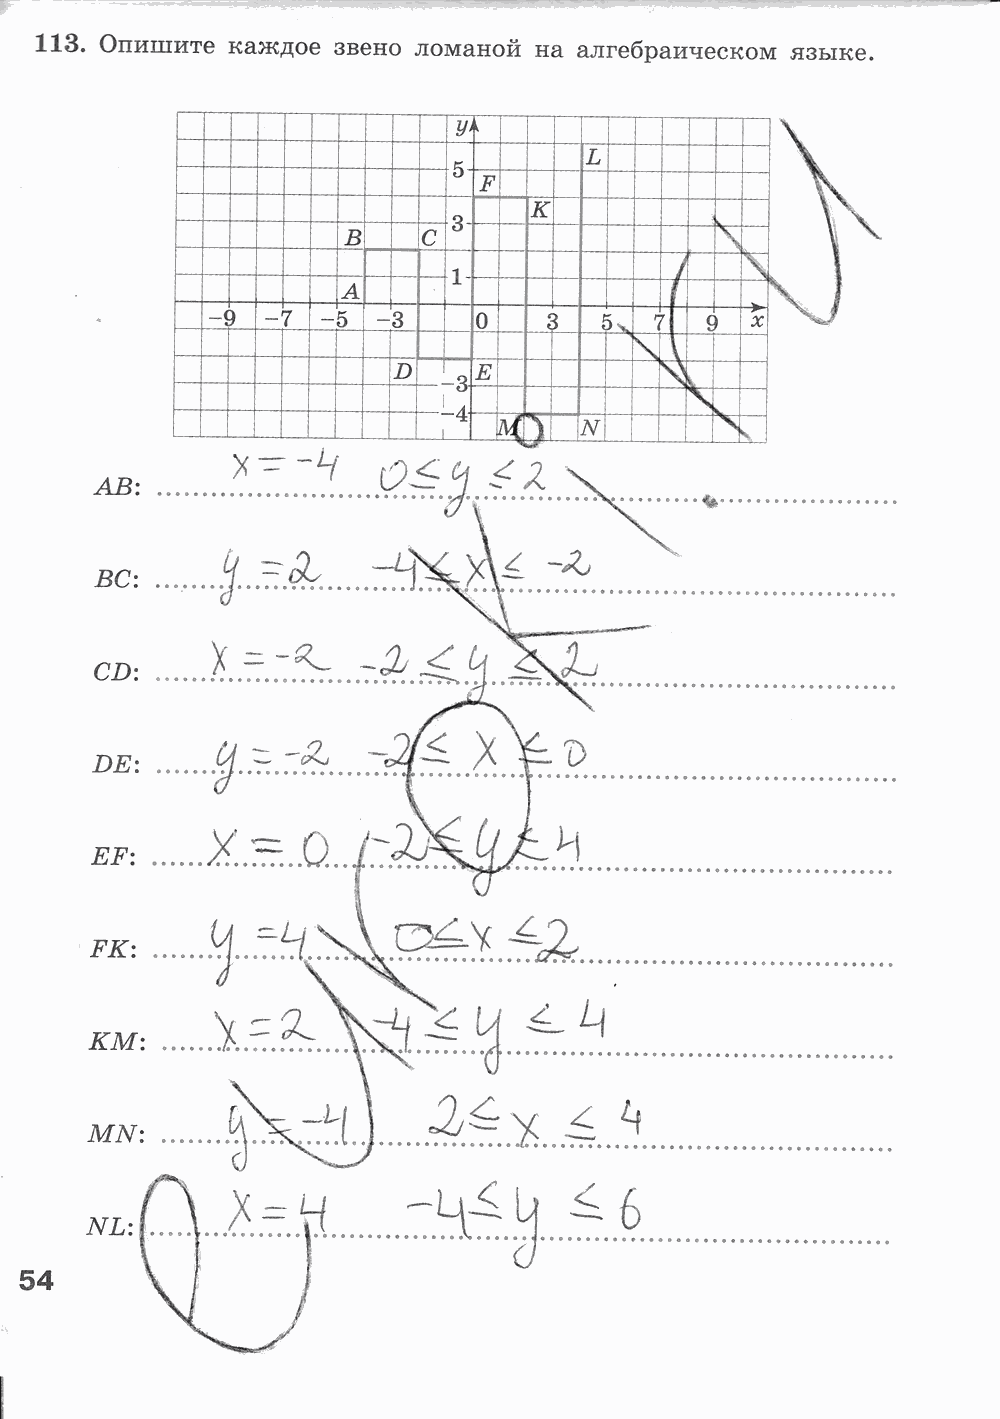 113. Опишите каждое звено ломаной на алгебраическом языке.
y
L
5
F
K
3
B
C
1
A
-9 -7 -5 -3 0 3 5 7 9 x
D
E
-3
-4
M
N
AB: x = -4 0 ≤ y ≤ 2
BC: y = 2 -4 ≤ x ≤ -2
CD: x = -2 -2 ≤ y ≤ 2
DE: y = -2 -2 ≤ x ≤ 0
EF: x = 0 -2 ≤ y ≤ 4
FK: y = 4 0 ≤ x ≤ 2
KM: x = 2 -4 ≤ y ≤ 4
MN: y = -4 2 ≤ x ≤ 4
NL: x = 4 -4 ≤ y ≤ 6
54